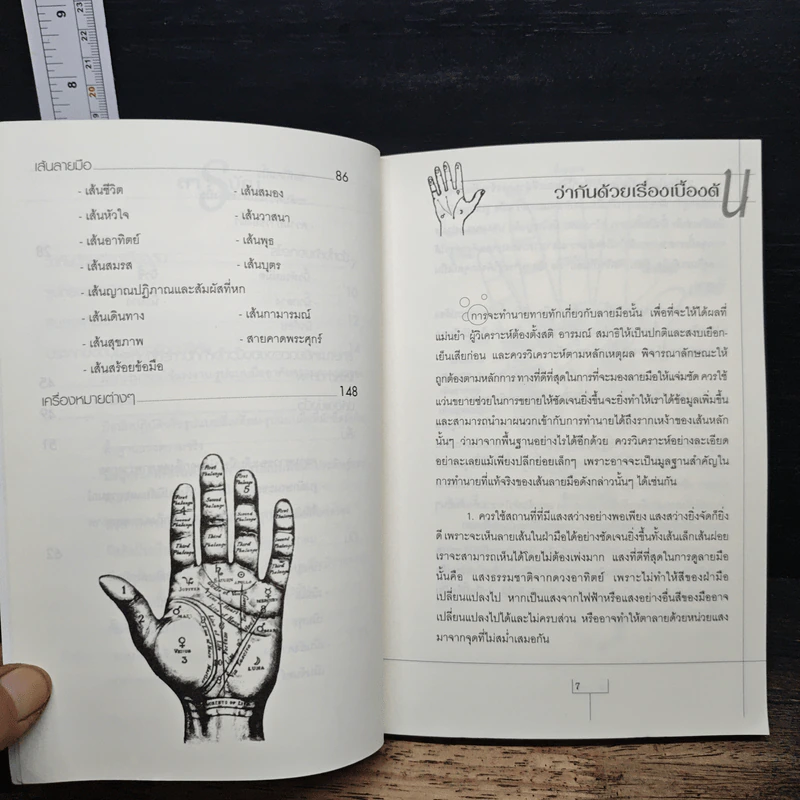 เส้นลายมือ 86
- เส้นชีวิต - เส้นสมอง
- เส้นหัวใจ - เส้นวาสนา
- เส้นอาทิตย์ - เส้นพุธ
- เส้นสมรส - เส้นบุตร
- เส้นญาณปฏิภาณและสัมผัสที่หก
- เส้นเดินทาง - เส้นกามารมณ์
- เส้นสุขภาพ - สายคาดพระศุกร์
- เส้นสร้อยข้อมือ
เครื่องหมายต่างๆ 148
First Phalange
Second Phalange
Third Phalange
1
2
3
5
JUPITER
SATURN
APOLLO
MARS
VENUS
LUNA
ว่ากันด้วยเรื่องเบื้องต้น
การจะทำนายทายทักเกี่ยวกับลายมือนั้น เพื่อที่จะให้ได้ผลที่
แม่นยำ ผู้วิเคราะห์ต้องตั้งสติ อารมณ์ สมาธิให้เป็นปกติและสงบเยือก-
เย็นเสียก่อน และควรวิเคราะห์ตามหลักเหตุผล พิจารณาลักษณะให้
ถูกต้องตามหลักการ ทางที่ดีที่สุดในการที่จะมองลายมือให้แจ่มชัด ควรใช้
แว่นขยายช่วยในการขยายให้ชัดเจนยิ่งขึ้นจะยิ่งทำให้เราได้ข้อมูลเพิ่มขึ้น
และสามารถนำมาผนวกเข้ากับการทำนายได้ถึงรากเหง้าของเส้นหลัก
นั้นๆ ว่ามาจากพื้นฐานอย่างไรได้อีกด้วย ควรวิเคราะห์อย่างละเอียด
อย่าละเลยแม้เพียงปลีกย่อยเล็กๆ เพราะอาจจะเป็นมูลฐานสำคัญใน
การทำนายที่แท้จริงของเส้นลายมือดังกล่าวนั้นๆ ได้เช่นกัน
1. ควรใช้สถานที่ที่มีแสงสว่างอย่างพอเพียง แสงสว่างยิ่งจัดก็ยิ่ง
ดี เพราะจะเห็นลายเส้นในฝ่ามือได้อย่างชัดเจนยิ่งขึ้นทั้งเส้นเล็กเส้นฝอย
เราจะสามารถเห็นได้โดยไม่ต้องเพ่งมาก แสงที่ดีที่สุดในการดูลายมือ
นั้นคือ แสงธรรมชาติจากดวงอาทิตย์ เพราะไม่ทำให้สีของฝ่ามือ
เปลี่ยนแปลงไป หากเป็นแสงจากไฟฟ้าหรือแสงอย่างอื่นสีของมืออาจ
เปลี่ยนแปลงไปได้และไม่ครบส่วน หรืออาจทำให้ตาลายด้วยหน่วยแสง
มาจากจุดที่ไม่สม่ำเสมอกัน
7